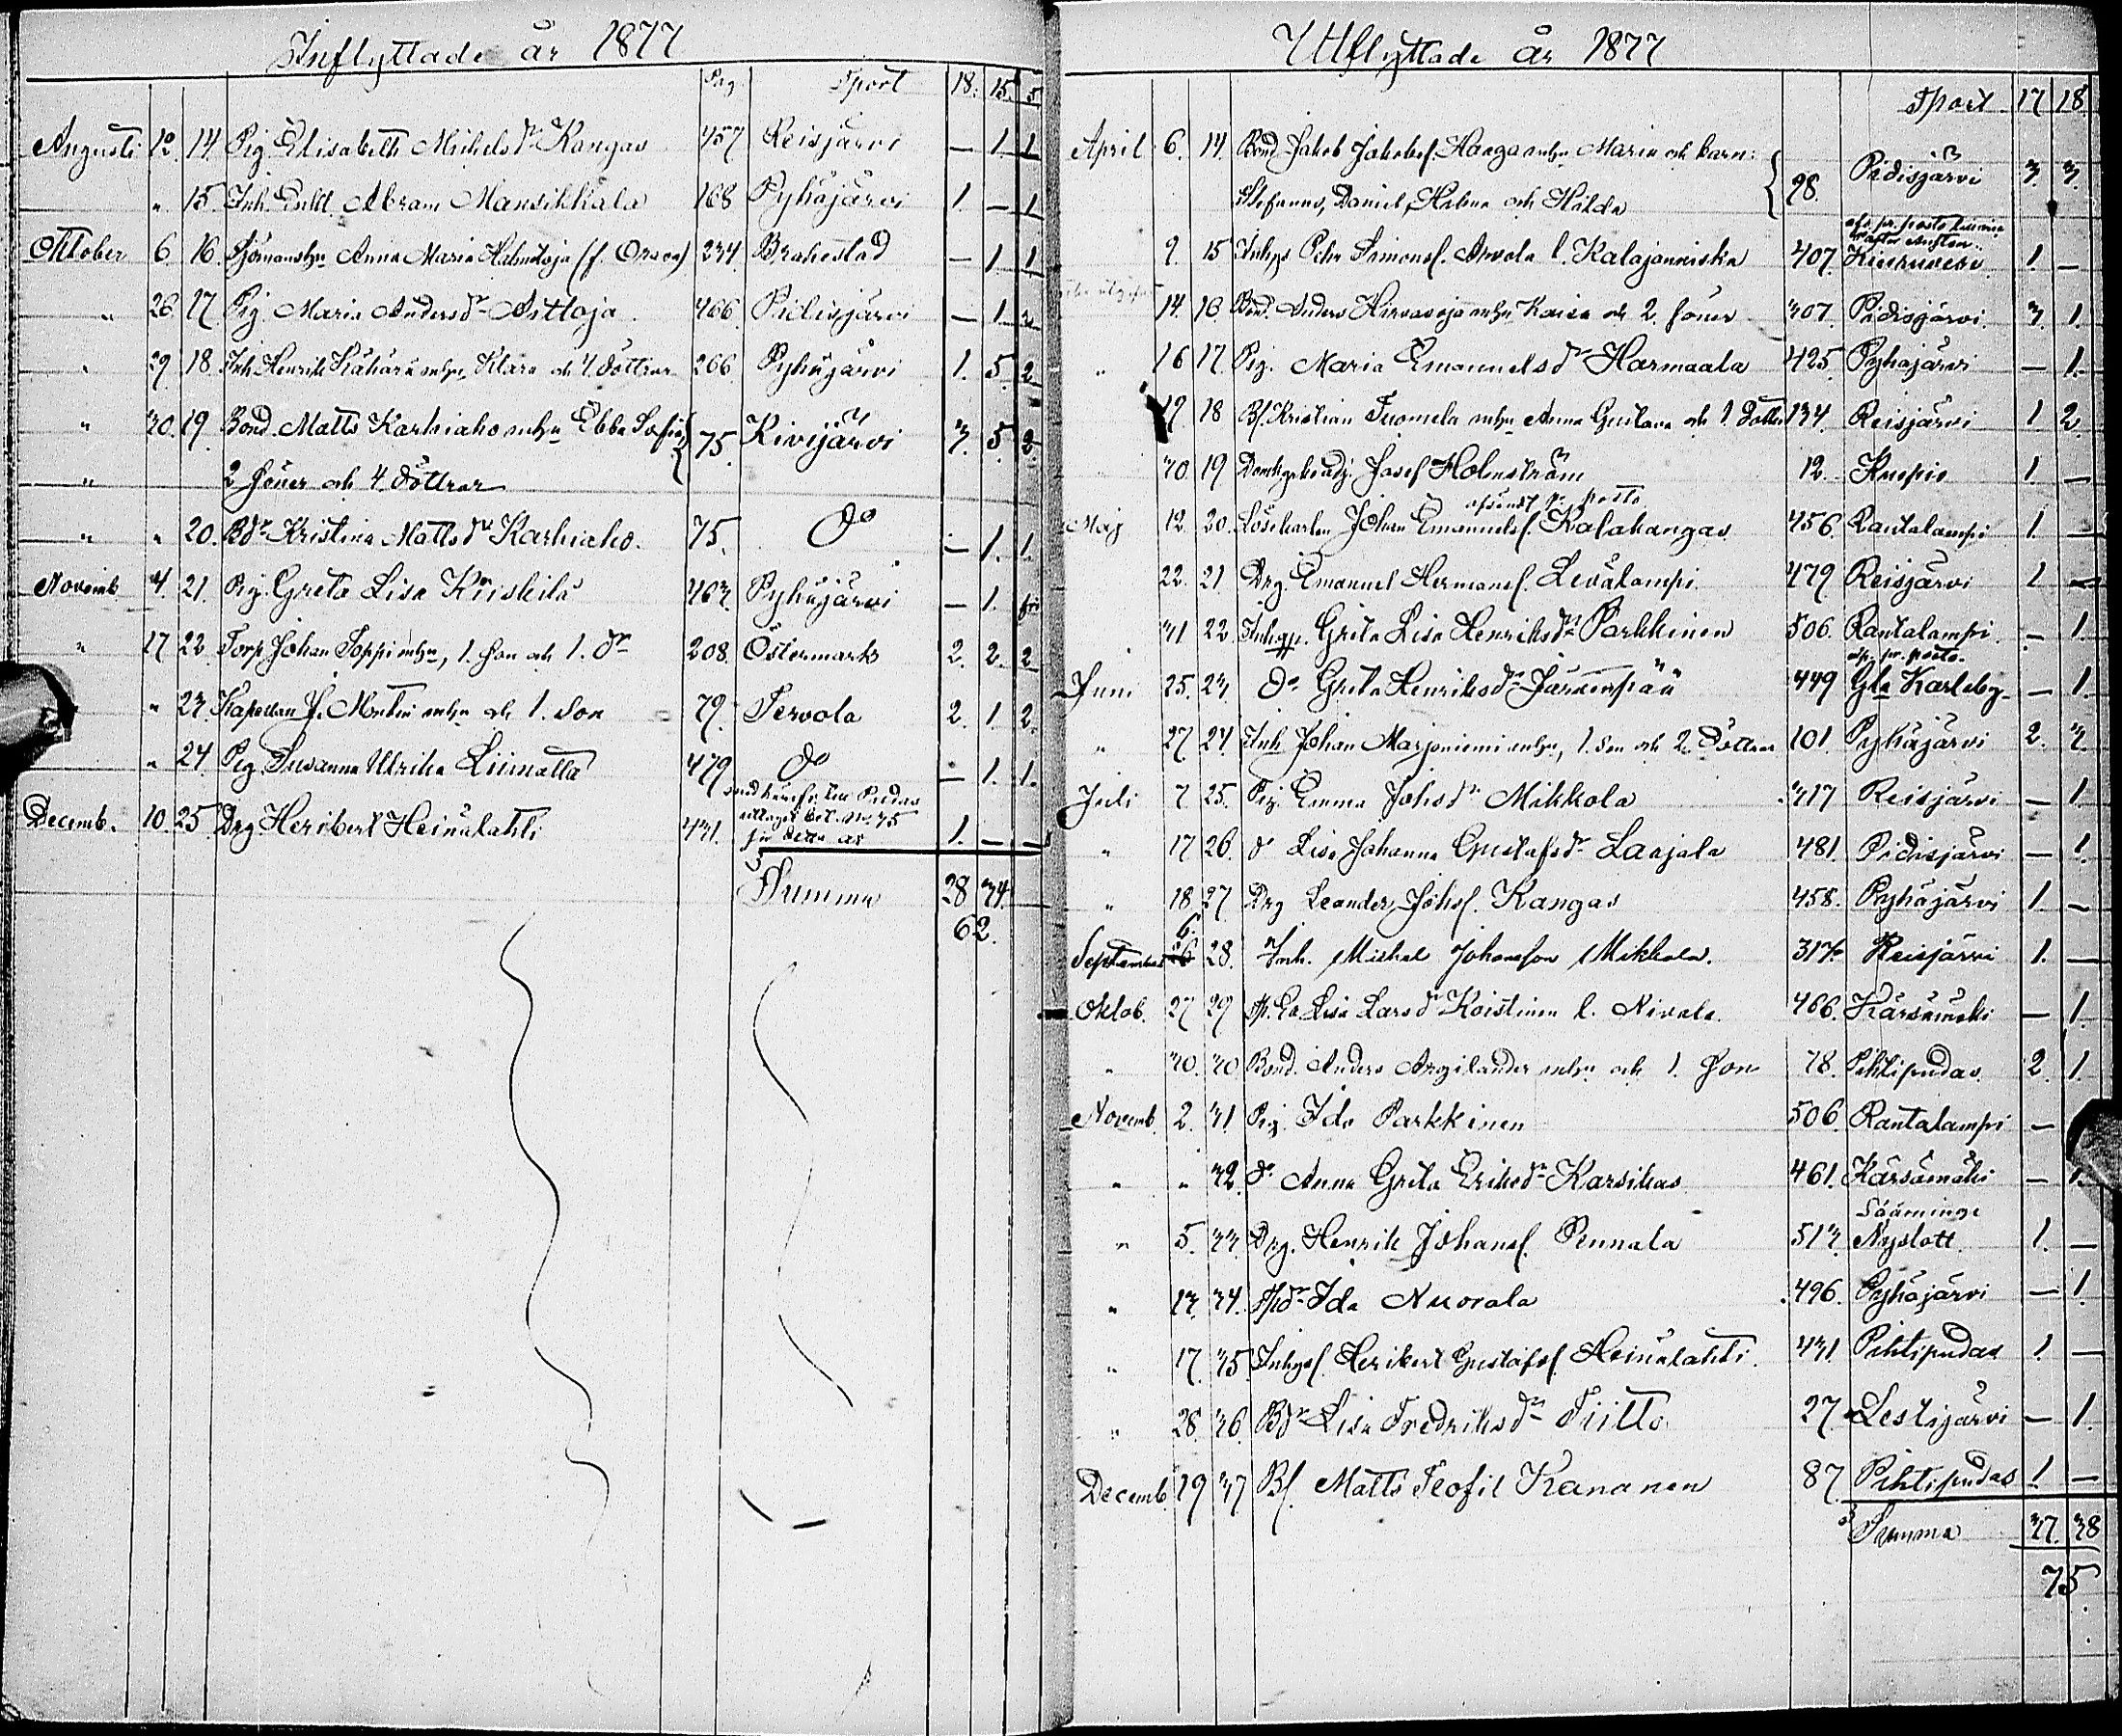 Inflyttade år 1877
Pag. Sport 18. 15. 5
Augusti 12. 14. Pig. Elisabeth Michelsdr Kangas 457 Reisjärvi — 1. 1
" 15. Inh. Enkl. Abram Mansikkala 168 Pyhäjärvi 1. — 1
Oktober 6 16. Anna Maria (f. Orava) 234 Brahestad — 1. 1
" 26 17. Pig. Maria Andersdr Aittoja 466 Pidisjärvi — 1.
" 29 18. Inh. Henrik Kähärä mhu Klara och 4 döttrar 266 Pyhäjärvi 1. 5. 2
" 30. 19. Bond. Matts Karhiaho mhu Ebba Sofia 75. Kivijärvi 3. 5. 2.
" 2 söner och 4 döttrar
" " 20. Bdr Kristina Mattsdr Karhiaho. 75. do — 1. 1.
Novemb. 4. 21. Pig. Greta Lisa Kiiskilä 463. Pyhäjärvi — 1.
" 17 22 Torp. Johan Soppi mhu, 1. son och 1. dr 208. Östermark 2. 2. 2
" 23. Kapellan mhu och 1. son 79. Tervola 2. 1. 2.
" 24. Pig. Susanna Ulrika Liimatta 479 do — 1. 1.
Decemb. 10. 25. Drg Heribert Heinälahti 431. 1. — —
Summa 28 34.
62.
Utflyttade år 1877
Sport 17 18
April 6. 14. Bond Jakob Jakobsf. Haaga mhu Maria och barn: Pidisjärvi 3. 3.
Stefanus, Daniel, Helena och Hilda 98.
9. 15 Inhys Petter Simonsf. Arvola l. Kalajanniska 407. 1. —
14. 16. Bond. Anders Hirvasoja mhu Kaisa och 2. söner 307. Pidisjärvi. 3. 1.
" 16 17. Pig. Maria Emanuelsdr Harmaala 425. Pyhäjärvi — 1.
19. 18 Bf. Kristian Tuomela mhu Anna Gustava och 1 dotter 134. Reisjärvi 1 2.
30. 19 Josef Holmström 12. Kuopio 1 —
afsändt pr posto
Maj 12. 20. Lösekarlen Johan Emanuelsf. Kalakangas 456. Rantalampi 1. —
22. 21 Drg. Emanuel Hermansf. Levälampi 479 Reisjärvi 1 —
31 22. Greta Lisa Henriksdr Parkkinen 506. Rantalampi. — 1.
afs. pr. posto.
Juni 25. 23 do Greta Henriksdr Järvenpää 449 Gla Karleby — 1.
" 27. 24. Inh Johan Marjoniemi mhu, 1. son och 2. döttrar 101. Pyhäjärvi 2. 3.
Juli 7 25. Pig. Emma Johsdr Mikkola 317 Reisjärvi — 1.
" 17 26. do Lisa Johanna Gustafsdr Laajala 481. Pidisjärvi — 1.
" 18. 27 Drg Leander Johsf. Kangas 458. Pyhäjärvi 1. —
6.
September 26 28. Inh. Mickel Johansson Mikkola. 317. Reisjärvi 1. —
Oktob. 27 29 Lisa Larsdr Koistinen l. Nivala. 466. Kärsämäki — 1.
" 30. 30 Bond. Anders Argilander mhu och 1. son 78. Pihtipudas. 2. 1.
Novemb. 2. 31. Pig. Ida Parkkinen 506. Rantalampi —
" " 32. do Anna Greta Eriksdr Karsikas 461. Kärsämäki — 1.
Sääminge
" 5. 33. Drg. Henrik Johansf. Pennala 513. Nyslott. 1. —
" 13. 34. Ida Nuorala 496. Pyhäjärvi — 1.
" 17. 35. Inhysf. Heribert Gustafsf. Heinälahti. 431. Pihtipudas 1. —
" 28. 36. Bdr Lisa Fredriksdr Tiitto 27. Lestijärvi — 1.
Decemb. 19 37 Bf. Matts Teofil Kananen 87. Pihtipudas 1 —
Summa 37. 38
75